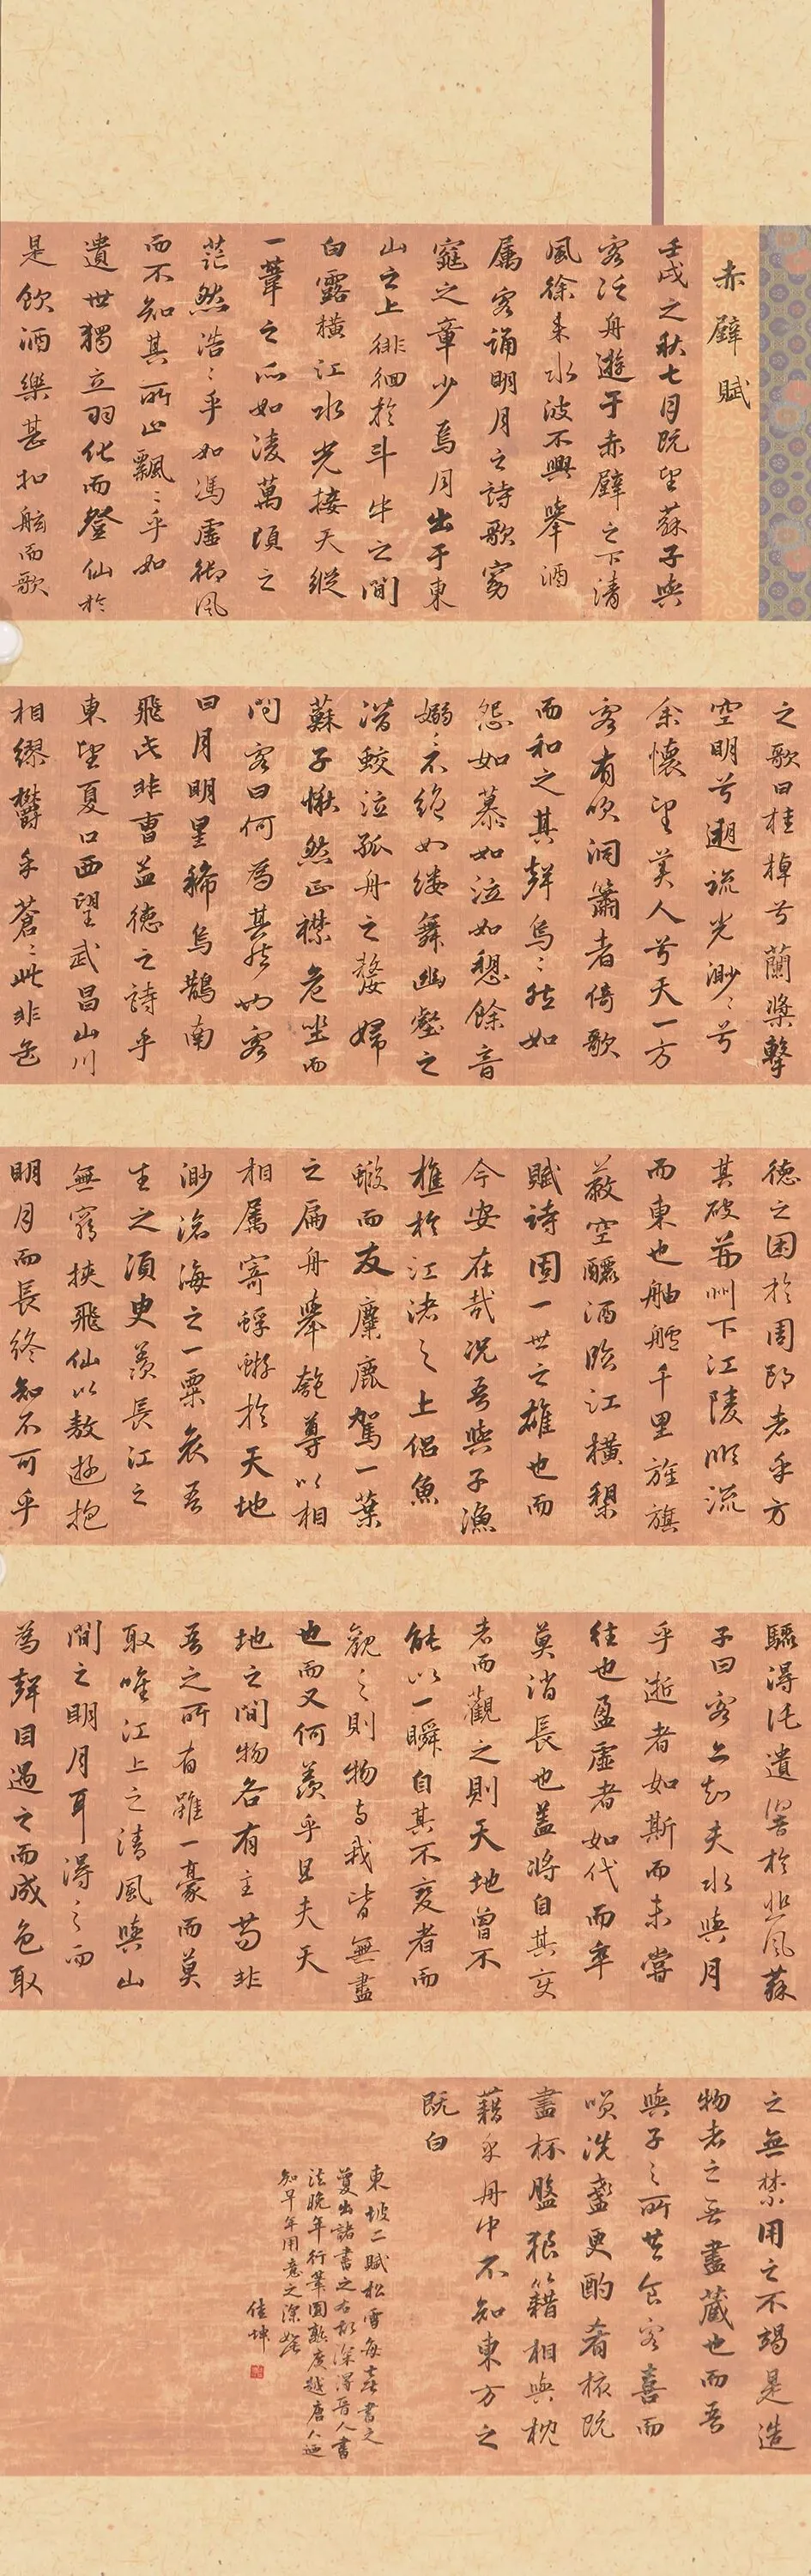 赤壁賦
壬戌之秋七月既望蘇子與
客泛舟遊于赤壁之下清
風徐來水波不興舉酒
属客誦明月之詩歌窈
窕之章少焉月出于東
山之上徘徊於斗牛之間
白露橫江水光接天縱
一葦之所如淩萬頃之
茫然浩〻乎如馮虛御風
而不知其所止飄〻乎如
遺世獨立羽化而登仙於
是飲酒樂甚扣舷而歌
之歌曰桂棹兮蘭槳擊
空明兮遡流光渺〻兮
余懷望美人兮天一方
客有吹洞簫者倚歌
而和之其聲烏〻然如
怨如慕如泣如愬餘音
嫋〻不絕如縷舞幽壑之
潛鮫泣孤舟之嫠婦
蘇子愀然正襟危坐而
問客曰何為其然也客
曰月明星稀烏鵲南
飛此非曹孟德之詩乎
東望夏口西望武昌山川
相繆欝乎蒼〻此非孟
德之困於周郎者乎方
其破荊州下江陵順流
而東也舳艫千里旌旗
蔽空釃酒臨江橫槊
賦詩固一世之雄也而
今安在哉況吾與子漁
樵於江渚之上侶魚
蝦而友麋鹿駕一葉
之扁舟舉匏尊以相
相属寄蜉蝣於天地
渺滄海之一粟哀吾
生之須臾羨長江之
無窮挾飛仙以敖遊抱
明月而長終知不可乎
驟得託遺響於悲風蘇
子曰客亦知夫水與月
乎逝者如斯而未嘗
往也盈虛者如代而卒
莫消長也蓋將自其变
者而觀之則天地曾不
能以一瞬自其不变者而
觀之則物与我皆無盡
也而又何羨乎且夫天
地之間物各有主苟非
吾之所有雖一豪而莫
取唯江上之清風與山
間之明月耳得之而
為聲目遇之而成色取
之無禁用之不竭是造
物者之無盡藏也而吾
與子之所共食客喜而
唉洗盞更酌肴核既
盡杯盤狼籍相與枕
藉乎舟中不知東方之
既白
東坡二賦松雪每喜書之
出諸書之右深得晉人書
法晚年行筆圓熟度越唐人
知早年用意之深
佳坤